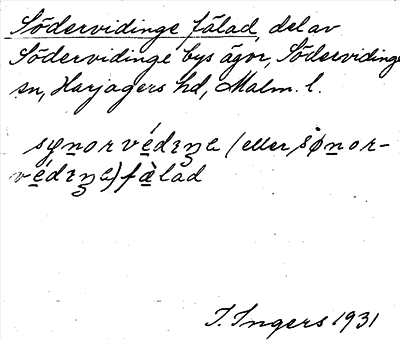 Södervidinge fälad, del av
Södervidinge bys ägor, Södervidinge
sn, Harjagers hd, Malm. l.
synorvédɪŋə (eller sønor-
védɪŋə) fàlad
I. Ingers 1931